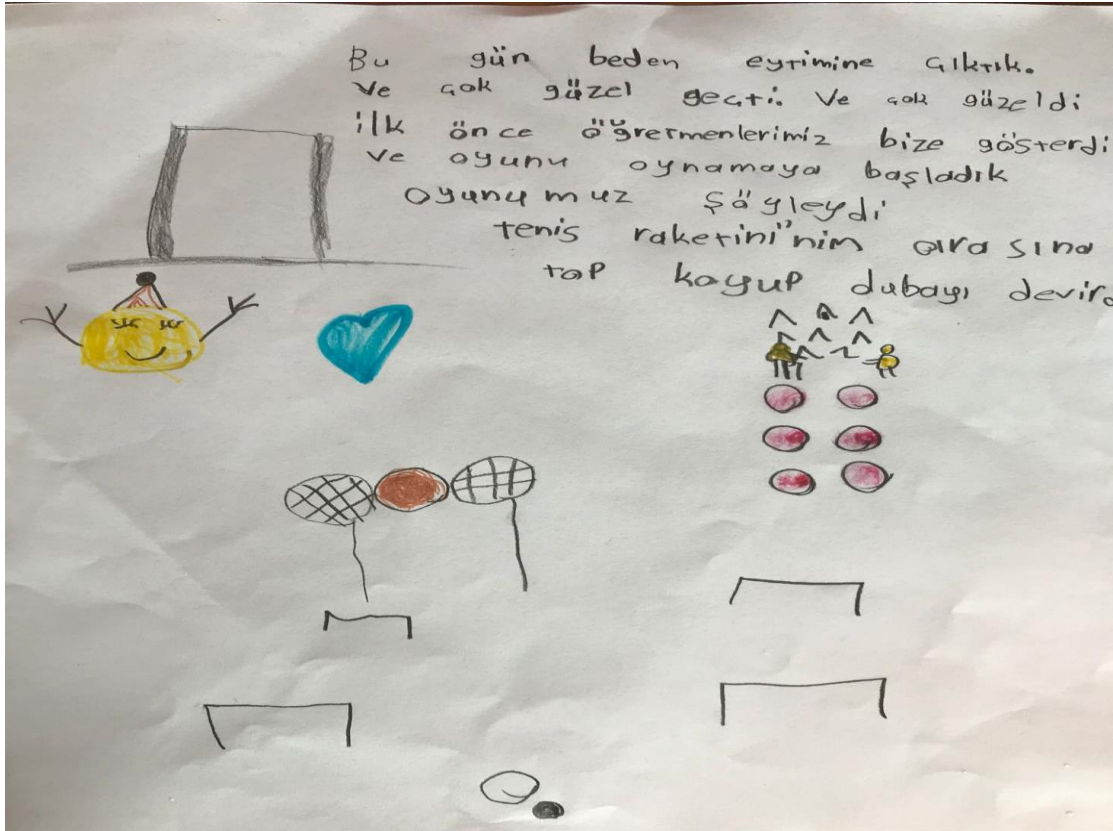 Bu gün beden eytimine çıktık.
Ve çok güzel geçti. Ve çok güzeldi
ilk önce öğretmenlerimiz bize gösterdi
ve oyunu oynamaya başladık
oyunumuz şöyleydi
tenis raketini'nim arasına
top koyup dubayı